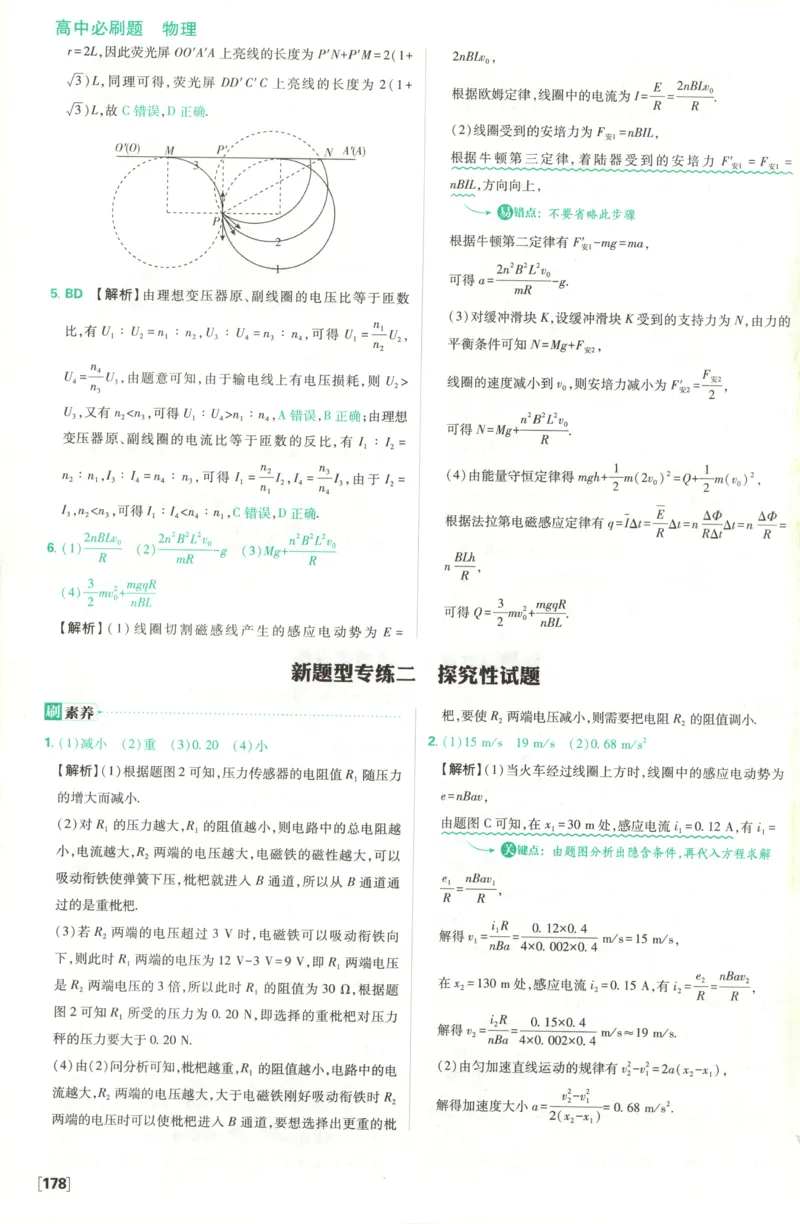 高中必刷题 物理
r=2L,因此荧光屏 OO′A′A 上亮线的长度为 P′N+P′M=2(1+
√3)L,同理可得,荧光屏 DD′C′C 上亮线的长度为 2(1+
√3)L,故 C 错误,D 正确.
O′(O) M P′ N A′(A)
3
P
2
1
5. BD 【解析】由理想变压器原、副线圈的电压比等于匝数
比,有 U₁∶U₂=n₁∶n₂,U₃∶U₄=n₃∶n₄,可得 U₁=n₁/n₂ U₂,
U₄=n₄/n₃ U₃,由题意可知,由于输电线上有电压损耗,则 U₂>
U₃,又有 n₂<n₃,可得 U₁∶U₄>n₁∶n₄,A 错误,B 正确;由理想
变压器原、副线圈的电流比等于匝数的反比,有 I₁∶I₂=
n₂∶n₁,I₃∶I₄=n₄∶n₃,可得 I₁=n₂/n₁ I₂,I₄=n₃/n₄ I₃,由于 I₂=
I₃,n₂<n₃,可得 I₁∶I₄<n₄∶n₁,C 错误,D 正确.
6. (1) 2nBLv₀/R (2) 2n²B²L²v₀/mR-g (3)Mg+n²B²L²v₀/R
(4) 3/2 mv₀²+mgqR/nBL
【解析】(1)线圈切割磁感线产生的感应电动势为 E=
2nBLv₀,
根据欧姆定律,线圈中的电流为 I=E/R=2nBLv₀/R.
(2)线圈受到的安培力为 F安₁=nBIL,
根据牛顿第三定律,着陆器受到的安培力 F′安₁=F安₁=
nBIL,方向向上,
易错点:不要省略此步骤
根据牛顿第二定律有 F′安₁-mg=ma,
可得 a=2n²B²L²v₀/mR-g.
(3)对缓冲滑块 K,设缓冲滑块 K 受到的支持力为 N,由力的
平衡条件可知 N=Mg+F安₂,
线圈的速度减小到 v₀,则安培力减小为 F′安₂=F安₂/2,
可得 N=Mg+n²B²L²v₀/R.
(4)由能量守恒定律得 mgh+1/2 m(2v₀)²=Q+1/2 m(v₀)²,
根据法拉第电磁感应定律有 q=I̅Δt=E̅/R Δt=n ΔΦ/RΔt Δt=n ΔΦ/R=
n BLh/R,
可得 Q=3/2 mv₀²+mgqR/nBL.
新题型专练二 探究性试题
刷素养
1. (1)减小 (2)重 (3)0.20 (4)小
【解析】(1)根据题图 2 可知,压力传感器的电阻值 R₁ 随压力
的增大而减小.
(2)对 R₁ 的压力越大,R₁ 的阻值越小,则电路中的总电阻越
小,电流越大,R₂ 两端的电压越大,电磁铁的磁性越大,可以
吸动衔铁使弹簧下压,枇杷就进入 B 通道,所以从 B 通道通
过的是重枇杷.
(3)若 R₂ 两端的电压超过 3 V 时,电磁铁可以吸动衔铁向
下,则此时 R₁ 两端的电压为 12 V-3 V=9 V,即 R₁ 两端电压
是 R₂ 两端电压的 3 倍,所以此时 R₁ 的阻值为 30 Ω,根据题
图 2 可知 R₁ 所受的压力为 0.20 N,即选择的重枇杷对压力
秤的压力要大于 0.20 N.
(4)由(2)问分析可知,枇杷越重,R₁ 的阻值越小,电路中的电
流越大,R₂ 两端的电压越大,大于电磁铁刚好吸动衔铁时 R₂
两端的电压时可以使枇杷进入 B 通道,要想选择出更重的枇
杷,要使 R₂ 两端电压减小,则需要把电阻 R₂ 的阻值调小.
2. (1)15 m/s 19 m/s (2)0.68 m/s²
【解析】(1)当火车经过线圈上方时,线圈中的感应电动势为
e=nBav,
由题图 C 可知,在 x₁=30 m 处,感应电流 i₁=0.12 A,有 i₁=
关键点:由题图分析出隐含条件,再代入方程求解
e₁/R=nBav₁/R,
解得 v₁=i₁R/nBa=0.12×0.4/4×0.002×0.4 m/s=15 m/s,
在 x₂=130 m 处,感应电流 i₂=0.15 A,有 i₂=e₂/R=nBav₂/R,
解得 v₂=i₂R/nBa=0.15×0.4/4×0.002×0.4 m/s≈19 m/s.
(2)由匀加速直线运动的规律有 v₂²-v₁²=2a(x₂-x₁),
解得加速度大小 a=v₂²-v₁²/2(x₂-x₁)=0.68 m/s².
[178]